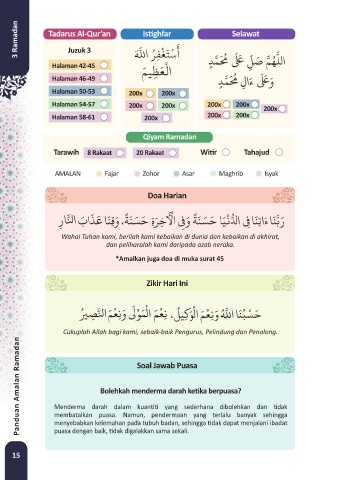 3 Ramadan
Tadarus Al-Qur'an
Juzuk 3
Halaman 42-45
Halaman 46-49
Halaman 50-53
Halaman 54-57
Halaman 58-61
Istighfar
أَسْتَغْفِرُ اللَّهَ
الْعَظِيمَ
200x 200x
200x 200x
200x
Selawat
اللَّهُمَّ صَلِّ عَلَىٰ مُحَمَّدٍ
وَعَلَىٰ آلِ مُحَمَّدٍ
200x 200x
200x
200x 200x
Qiyam Ramadan
Tarawih 8 Rakaat 20 Rakaat Witir Tahajud
AMALAN Fajar Zohor Asar Maghrib Isyak
Doa Harian
رَبَّنَا آتِنَا فِي الدُّنْيَا حَسَنَةً وَفِي الْآخِرَةِ حَسَنَةً، وَقِنَا عَذَابَ النَّارِ
Wahai Tuhan kami, berilah kami kebaikan di dunia dan kebaikan di akhirat,
dan peliharalah kami daripada azab neraka.
*Amalkan juga doa di muka surat 45
Zikir Hari Ini
حَسْبُنَا اللَّهُ وَنِعْمَ الْوَكِيلُ، نِعْمَ الْمَوْلَىٰ وَنِعْمَ النَّصِيرُ
Cukuplah Allah bagi kami, sebaik-baik Pengurus, Pelindung dan Penolong.
Soal Jawab Puasa
Bolehkah menderma darah ketika berpuasa?
Menderma darah dalam kuantiti yang sederhana dibolehkan dan tidak
membatalkan puasa. Namun, pendermaan yang terlalu banyak sehingga
menyebabkan kelemahan pada tubuh badan, sehingga tidak dapat menjalani ibadat
puasa dengan baik, tidak digalakkan sama sekali.
Panduan Amalan Ramadan
15